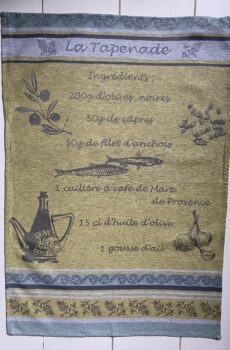 La Tapenade
Ingrédients :
200g d'olives noires
50g de câpres
50g de filet d'anchois
1 cuillère à café de Marc
de Provence
15 cl d'huile d'olive
1 gousse d'ail
OLIVE